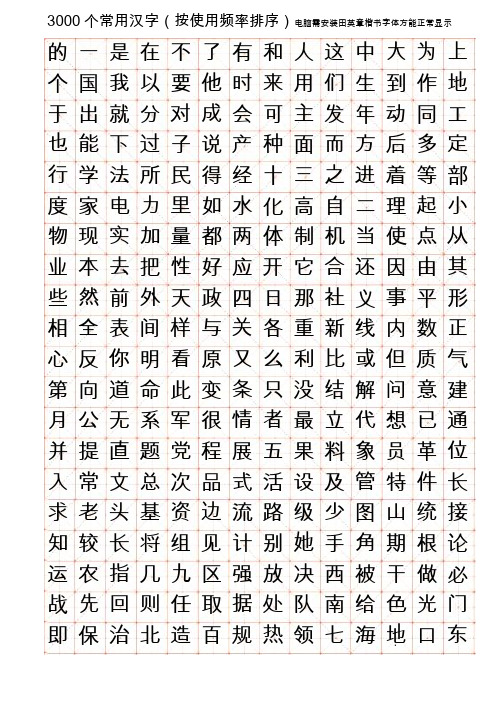 3000个常用汉字（按使用频率排序）电脑需安装田英章楷书字体方能正常显示
的一是在不了有和人这中大为上
个国我以要他时来用们生到作地
于出就分对成会可主发年动同工
也能下过子说产种面而方后多定
行学法所民得经十三之进着等部
度家电力里如水化高自二理起小
物现实加量都两体制机当使点从
业本去把性好应开它合还因由其
些然前外天政四日那社义事平形
相全表间样与关各重新线内数正
心反你明看原又么利比或但质气
第向道命此变条只没结解问意建
月公无系军很情者最立代想已通
并提直题党程展五果料象员革位
入常文总次品式活设及管特件长
求老头基资边流路级少图山统接
知较长将组见计别她手角期根论
运农指几九区强放决西被干做必
战先回则任取据处队南给色光门
即保治北造百规热领七海地口东